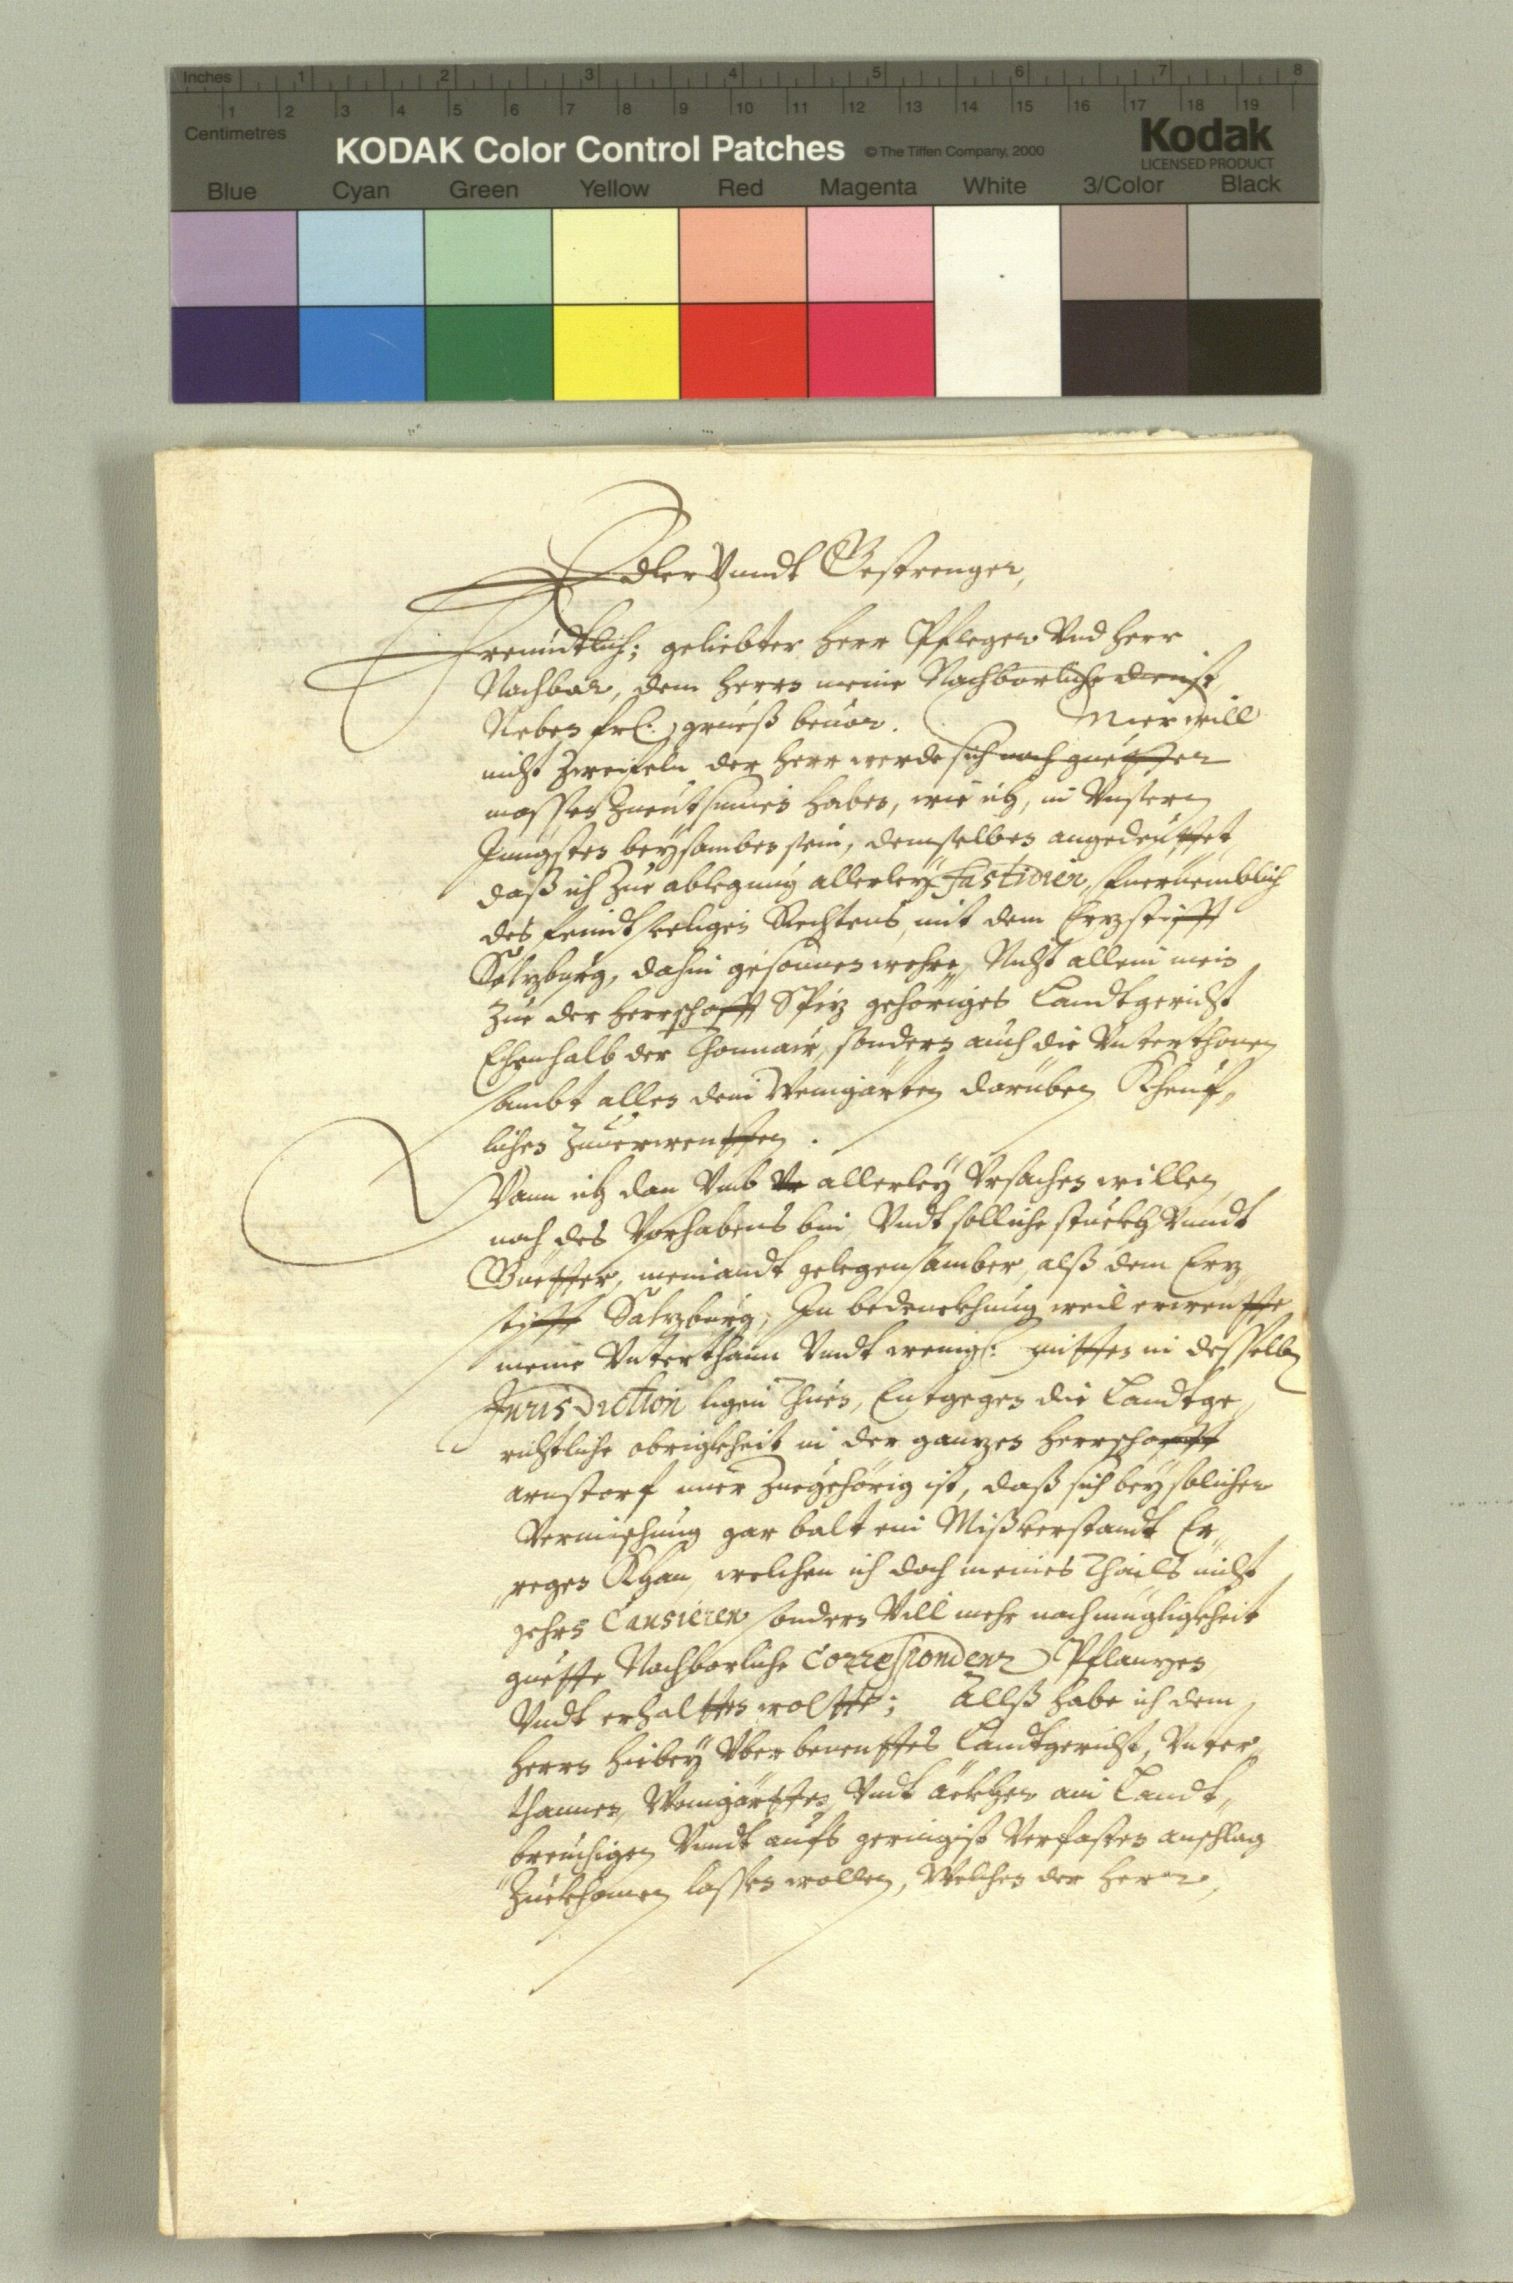 Inches 1 2 3 4 5 6 7 8
1 2 3 4 5 6 7 8 9 10 11 12 13 14 15 16 17 18 19
Centimetres
KODAK Color Control Patches © The Tiffen Company, 2000 Kodak
LICENSED PRODUCT
Blue Cyan Green Yellow Red Magenta White 3/Color Black
Edler Vundt Gestrenger,
Freundtlich; geliebter Herr Pfleger Vnd Herr
Nachbar, dem Herrn meine Nachbarliche dienst,
Neben frl: grueß beuor. Mier will
nicht Zweifeln der Herr werde sich noch guetter
massen Zuentsinnen haben, wie ich, in Vnsern
Jungsten beysamben sein, demselben angedeuttet,
daß ich Zue ablegung allerley Fastidien, fuernemblich
des feindtseeligen Rechtens, mit dem Erzstifft
Salzburg, dahin gesonnen wehre, Nicht allein mein
Zue der Herrschafft Spiz gehöriges Landtgericht
Ehenhalb der Thonnau, sondern auch die Vnterthonen
sambt allen den Weingärten darüben Kheuf„
lichen Zuuerwenden.
Wann ich dan Vmb allerley Vrsachen willen
noch des Vorhabens bin, Vndt solliche stuckh Vundt
Guetter, niemandt gelegensamber, alß dem Erz„
stifft Salzburg, In bedenckhung weil erwente
meine Vnterthann Vndt weingl: mitten in desselben
Jurisdiction ligen Thuen, Entgegen die Landtge„
richtliche obrigkheit in der ganzen Herrschafft
arnstorf mier Zuegehörig ist, daß sich bey solicher
Vermischung gar balt ein Mißverstandt Er„
regen Khan, welchen ich doch meines Thails nicht
gehrn Causieren sondern Vill mehr nach mügligkheit
guette Nachbarliche Correspondenz Pflanzen,
Vndt erhalten wolte; Allß habe ich dem
Herrn hiebey Vber benentes Landtgericht, Vnter„
thannen, Weingärtten, Vndt äckher ain Landt„
breuchigen Vundt aufs geringist Verfasten anschlag
Zuekhomen lassen wollen, Welchen der Herr,